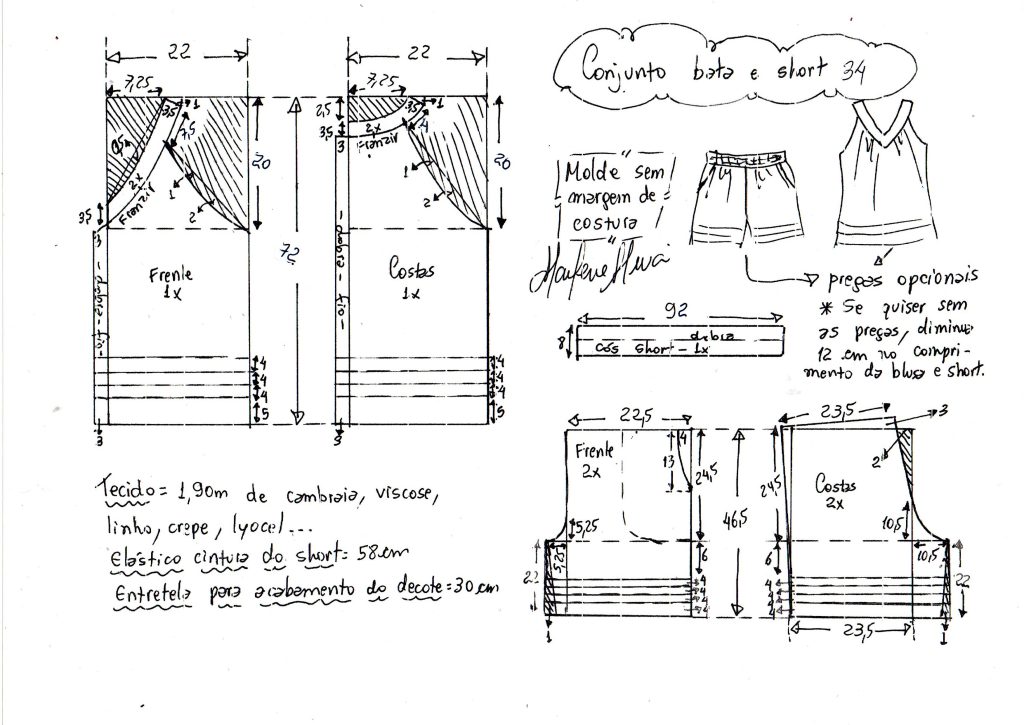 Conjunto bata e short 34
Molde sem
margem de
costura
Marlene Mukai
22
7,25
3,5
1
7,5
9,5
2x
Franzir
3,5
3
1
2
20
72
Frente
1x
dobra - fio
4
4
4
5
3
22
7,25
2,5
3,5
1
4
3,5
2x
Franzir
3
1
2
20
Costas
1x
dobra - fio
4
4
4
5
3
pregas opcionais
* Se quiser sem
as pregas, diminua
12 cm no compri-
mento da blusa e short.
92
8
dobra
cós short - 1x
Tecido = 1,90m de cambraia, viscose,
linho, crepe, lyocel...
Elástico cintura do short = 58 cm
Entretela para acabamento do decote = 30 cm
22,5
Frente
2x
4
13
24,5
5,25
5,25
22
6
4
4
4
4
1
46,5
23,5
3
2
24,5
Costas
2x
10,5
10,5
6
4
4
4
4
22
23,5
1